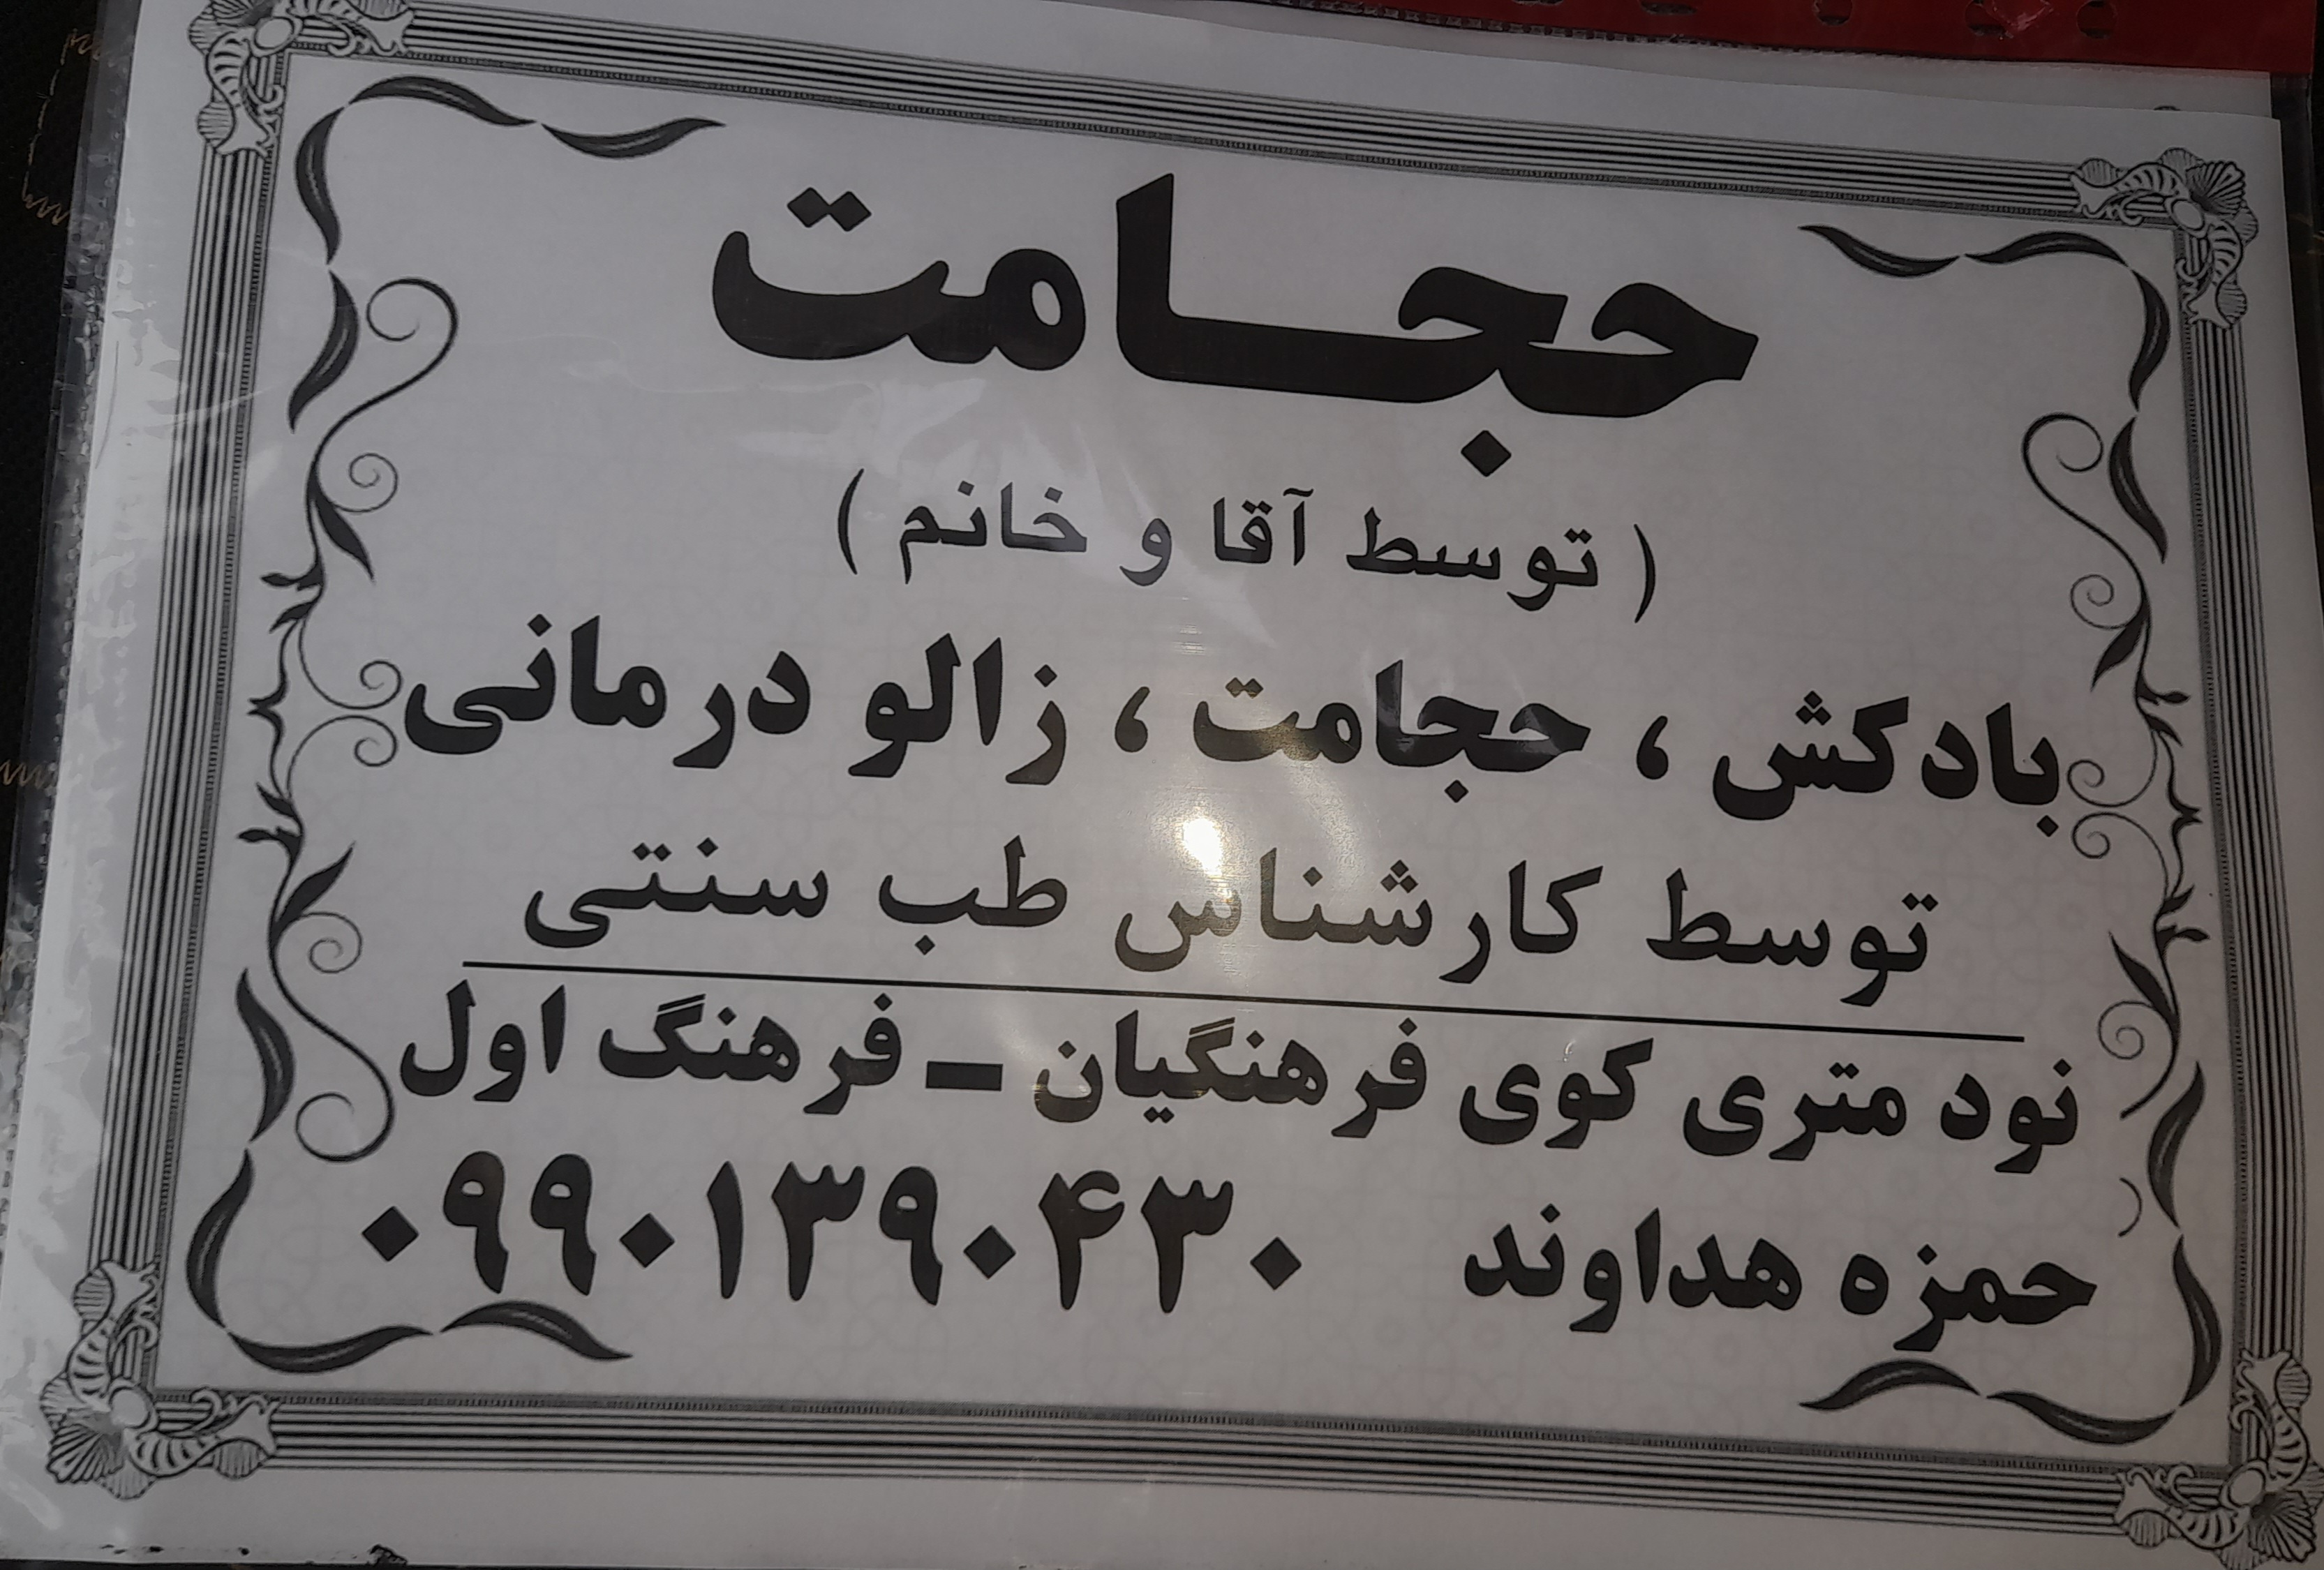 حجامت
( توسط آقا و خانم )
بادکش ، حجامت ، زالو درمانی
توسط کارشناس طب سنتی
نود متری کوی فرهنگیان - فرهنگ اول
حمزه هداوند ۰۹۹۰۱۳۹۰۴۳۰